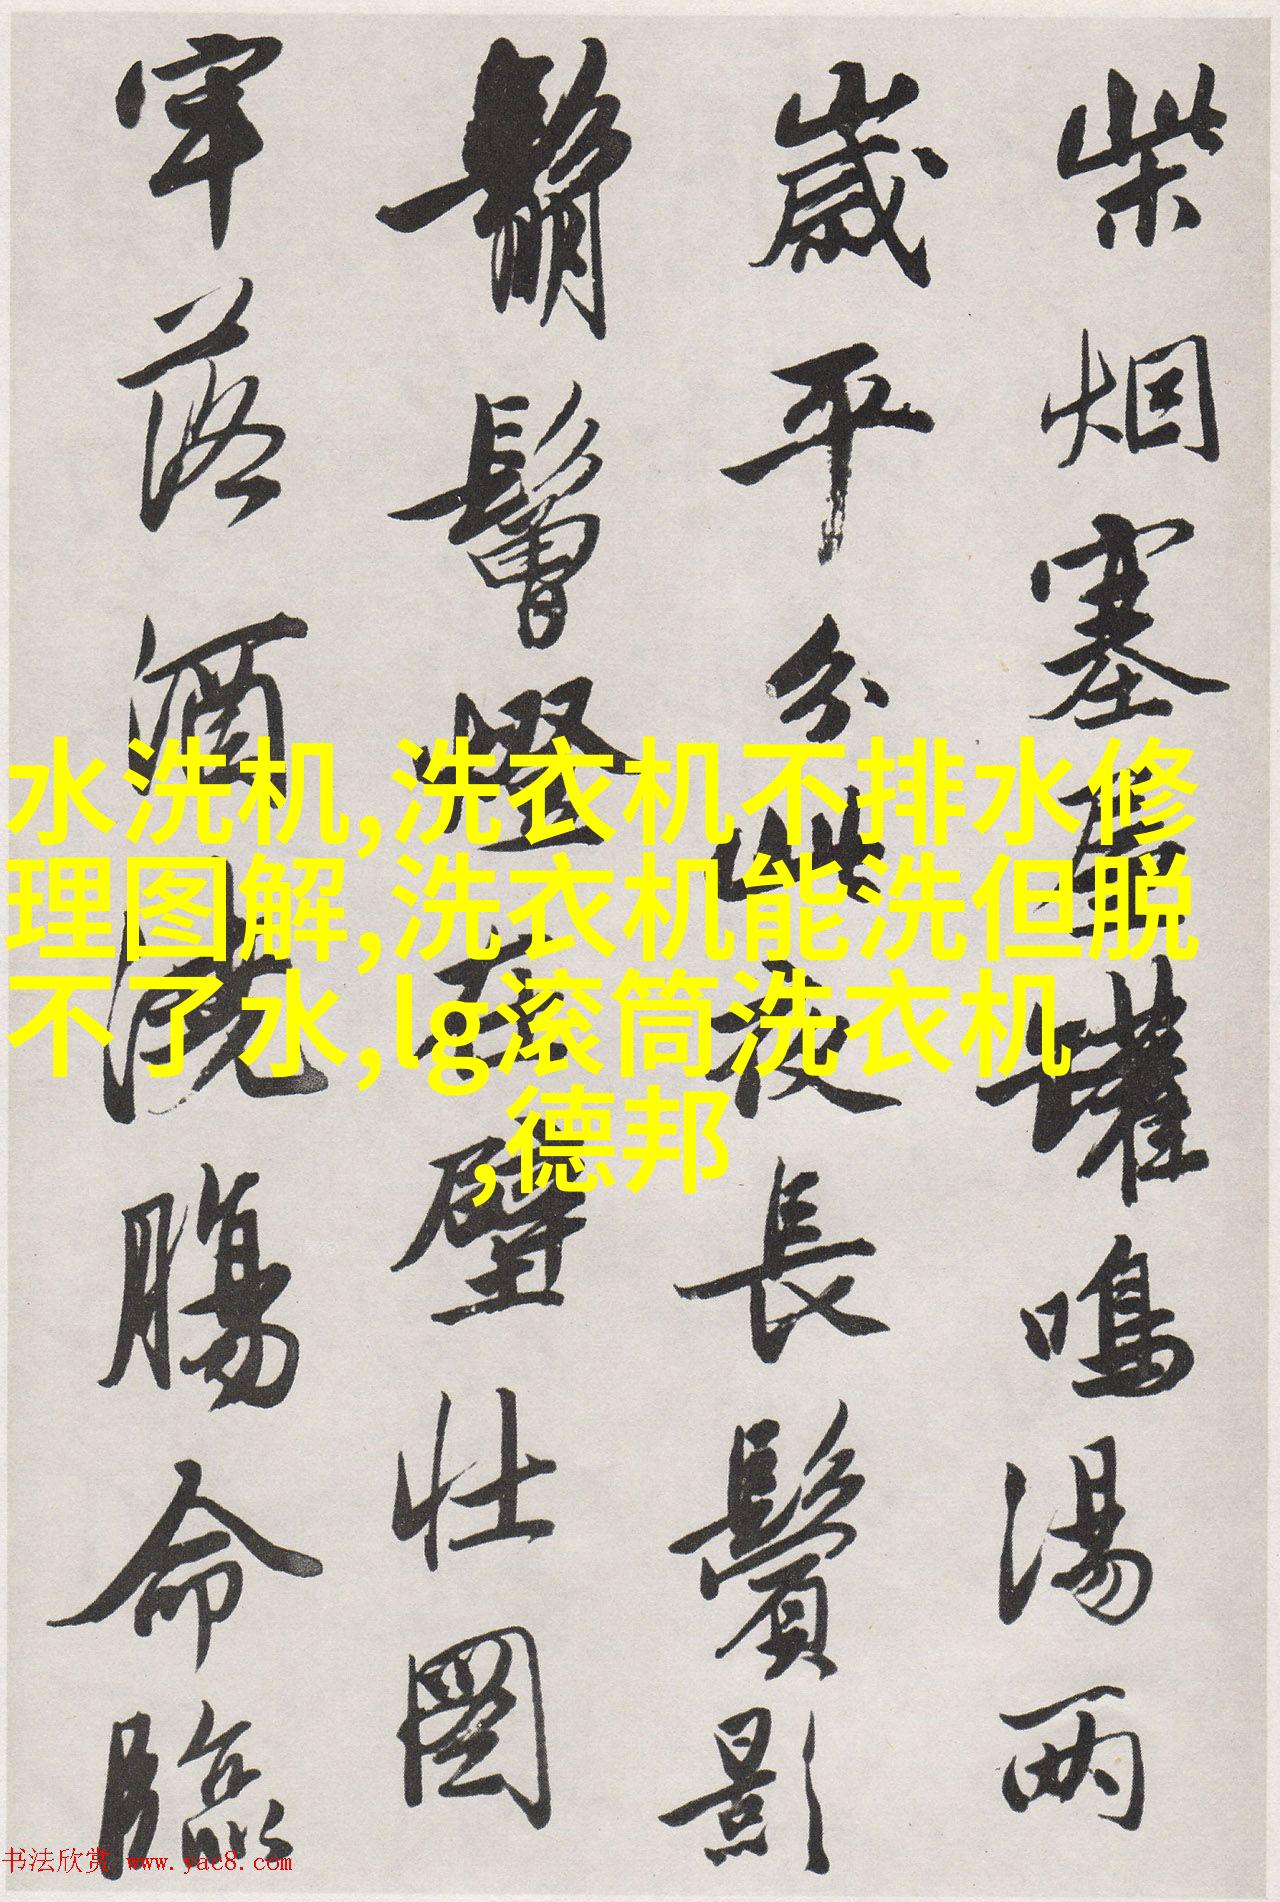 柴烟塞屋罐鳴湯兩
歲平分此夜長鬢影
鬅鬙燈在壁壮圖
牢落酒澆腸命臨
水洗机,洗衣机不排水修
理图解,洗衣机能洗但脱
不了水,lg滚筒洗衣机
,德邦
书法欣赏 www.yac8.com